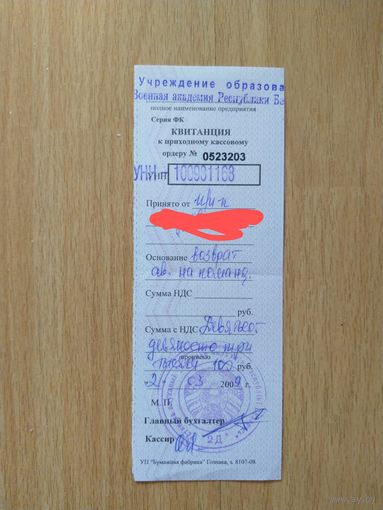 Учреждение образова
Военная академия Республики Бе
полное наименование предприятия
Серия ФК
КВИТАНЦИЯ
к приходному кассовому
ордеру № 0523203
УНП УНН - 100901168
Принято от
Основание возврат
ав. на команд.
Сумма НДС
руб.
Сумма с НДС Девяносто
девяносто три
прописью
тысячи 10 руб.
«2» 03 2009 г.
М.П.
Главный бухгалтер
Кассир
2Д
УП "Бумажная фабрика" Гознака, з. 8107-08.
ay.by